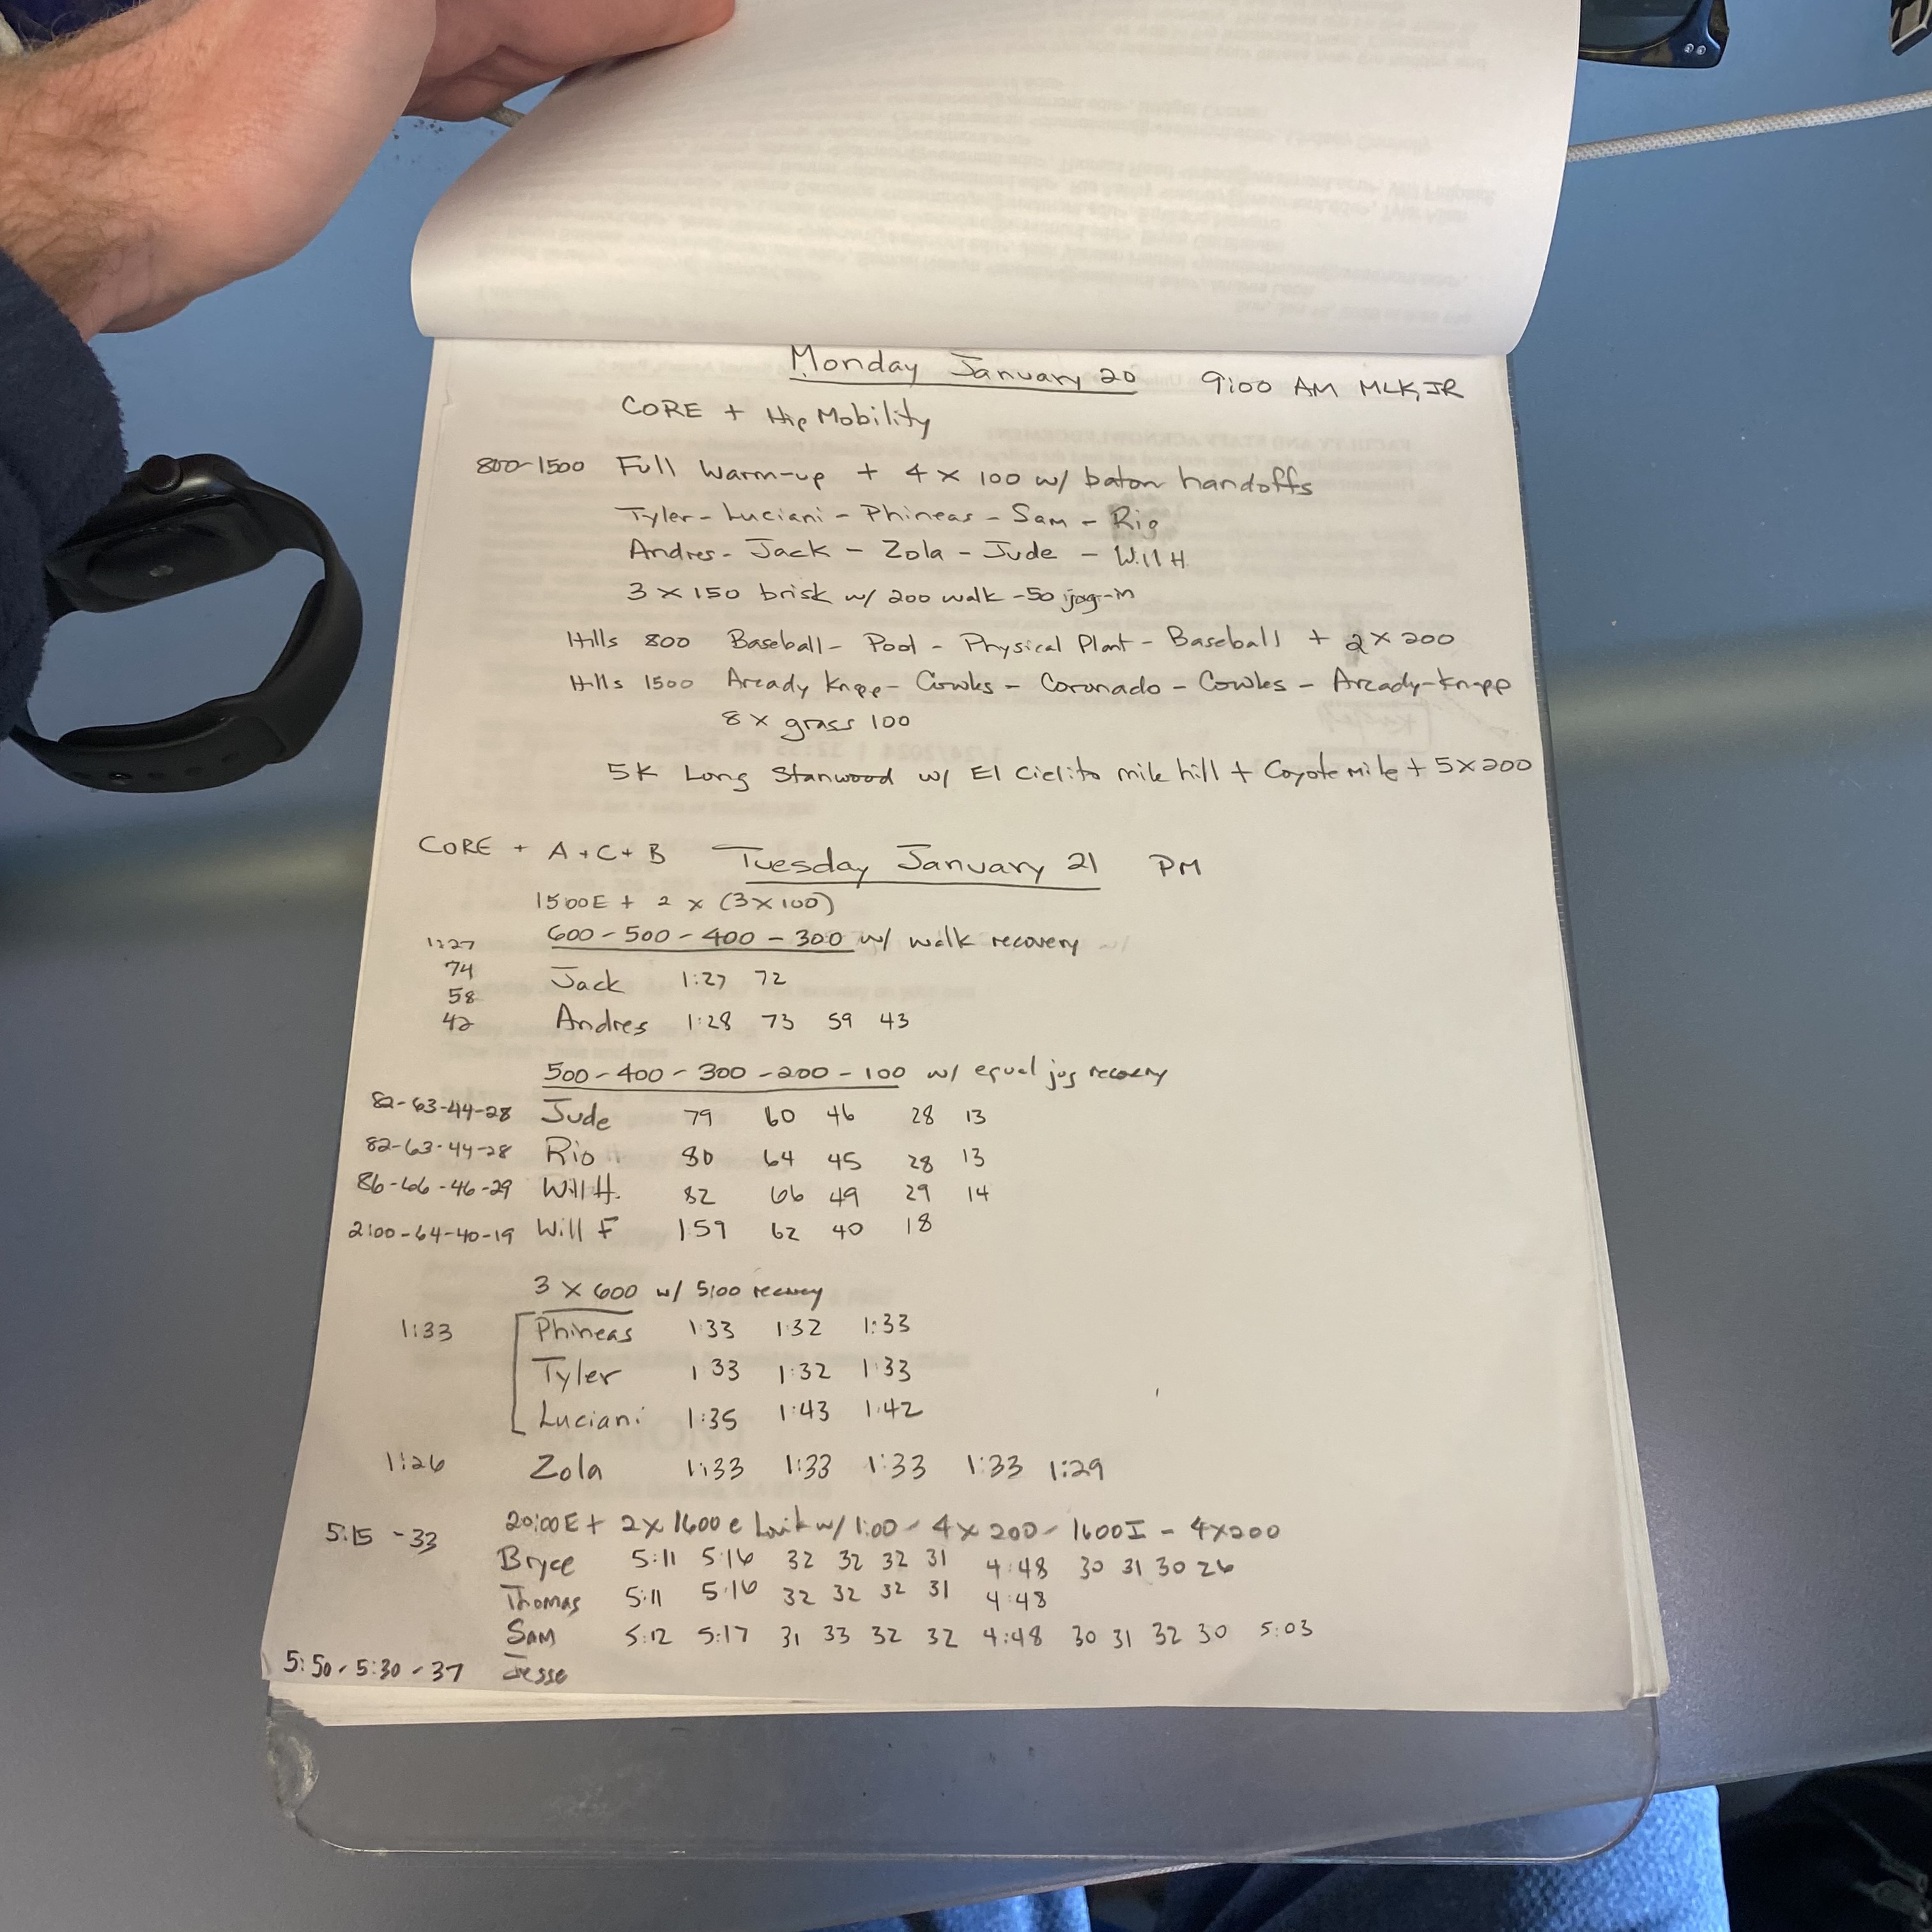 Monday January 20 9:00 AM MLK, JR
CORE + Hip Mobility
800-1500 Full Warm-up + 4 x 100 w/ baton handoffs
Tyler - Luciani - Phineas - Sam - Rio
Andres - Jack - Zola - Jude - Will H
3 x 150 brisk w/ 200 walk -50 jog-in
Hills 800 Baseball - Pool - Physical Plant - Baseball + 2 x 200
Hills 1500 Arcady Knapp - Cowles - Coronado - Cowles - Arcady-Knapp
8 x grass 100
5K Long Stanwood w/ El Cielito mile hill + Coyote Mile + 5 x 200
CORE + A+C+B Tuesday January 21 PM
1500E + 2 x (3x100)
600-500-400-300 w/ walk recovery
1:27
74
58
42
Jack 1:27 72
Andres 1:28 73 59 43
500-400-300-200-100 w/ equal jog recovery
82-63-44-28 Jude 79 60 46 28 13
82-63-44-28 Rio 80 64 45 28 13
86-66-46-29 Will H. 82 66 49 29 14
2:00-64-40-19 Will F 1 59 62 40 18
3 x 600 w/ 5:00 recovery
1:33 Phineas 1:33 1:32 1:33
Tyler 1 33 1:32 1:33
Luciani 1:35 1:43 1:42
1:26 Zola 1:33 1:33 1:33 1:33 1:29
5:15 -33 20:00E + 2 x 1600 w/ 1:00 - 4 x 200 - 1600I - 4x200
Bryce 5:11 5:16 32 32 32 31 4:48 30 31 30 26
Thomas 5:11 5:16 32 32 32 31 4:48
Sam 5:12 5:17 31 33 32 32 4:48 30 31 32 30 5:03
5:50 - 5:30 - 37 Jesse